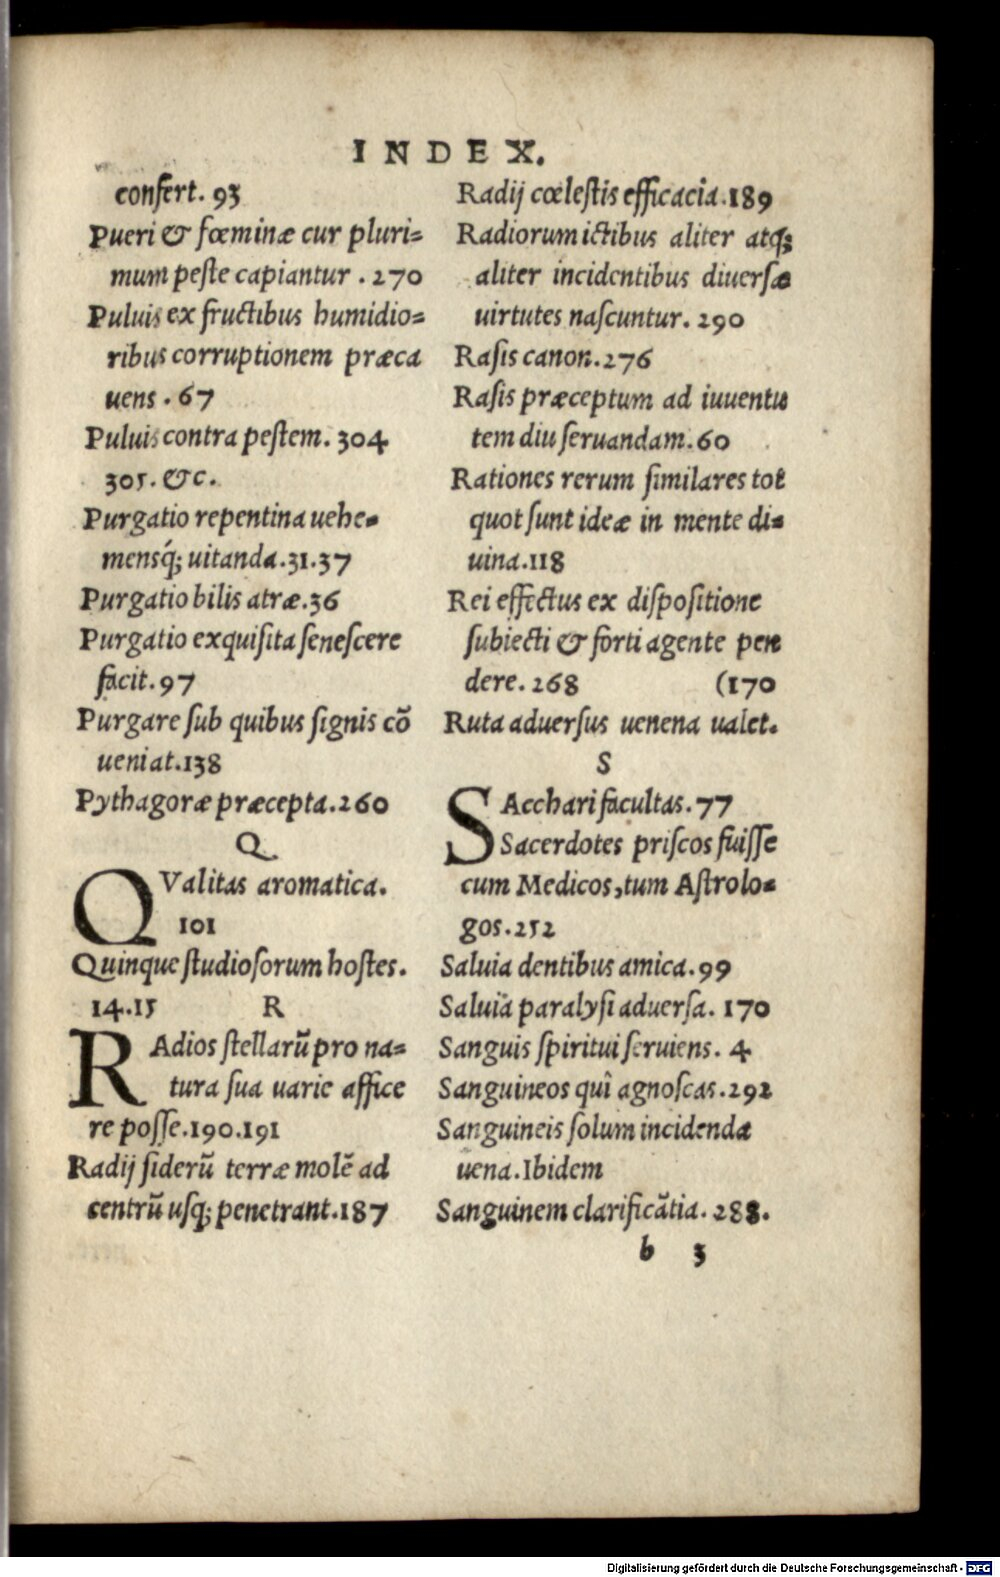 INDEX.
confert. 93
Pueri & fœminæ cur pluri=
mum peste capiantur . 270
Puluis ex fructibus humidio=
ribus corruptionem præca
uens . 67
Puluis contra pestem. 304
305. &c.
Purgatio repentina uehe=
mensq́; uitanda.31.37
Purgatio bilis atræ.36
Purgatio exquisita senescere
facit.97
Purgare sub quibus signis cõ
ueniat.138
Pythagoræ præcepta.260
Q
QValitas aromatica.
101
Quinque studiosorum hostes.
14.15
R
RAdios stellarũ pro na=
tura sua uarie affice
re posse.190.191
Radij siderũ terræ molẽ ad
centrũ usq; penetrant.187
Radij cœlestis efficacia.189
Radiorum ictibus aliter atq;
aliter incidentibus diuersæ
uirtutes nascuntur. 290
Rasis canon.276
Rasis præceptum ad iuuentu
tem diu seruandam.60
Rationes rerum similares tot
quot sunt ideæ in mente di=
uina.118
Rei effectus ex dispositione
subiecti & forti agente pen
dere. 268
(170
Ruta aduersus uenena ualet.
S
SAcchari facultas. 77
Sacerdotes priscos fuisse
cum Medicos, tum Astrolo=
gos.252
Saluia dentibus amica. 99
Saluia paralysi aduersa. 170
Sanguis spiritui seruiens. 4
Sanguineos quî agnoscas.292
Sanguineis solum incidenda
uena.Ibidem
Sanguinem clarificãtia. 288.
b 3
Digitalisierung gefördert durch die Deutsche Forschungsgemeinschaft - DFG